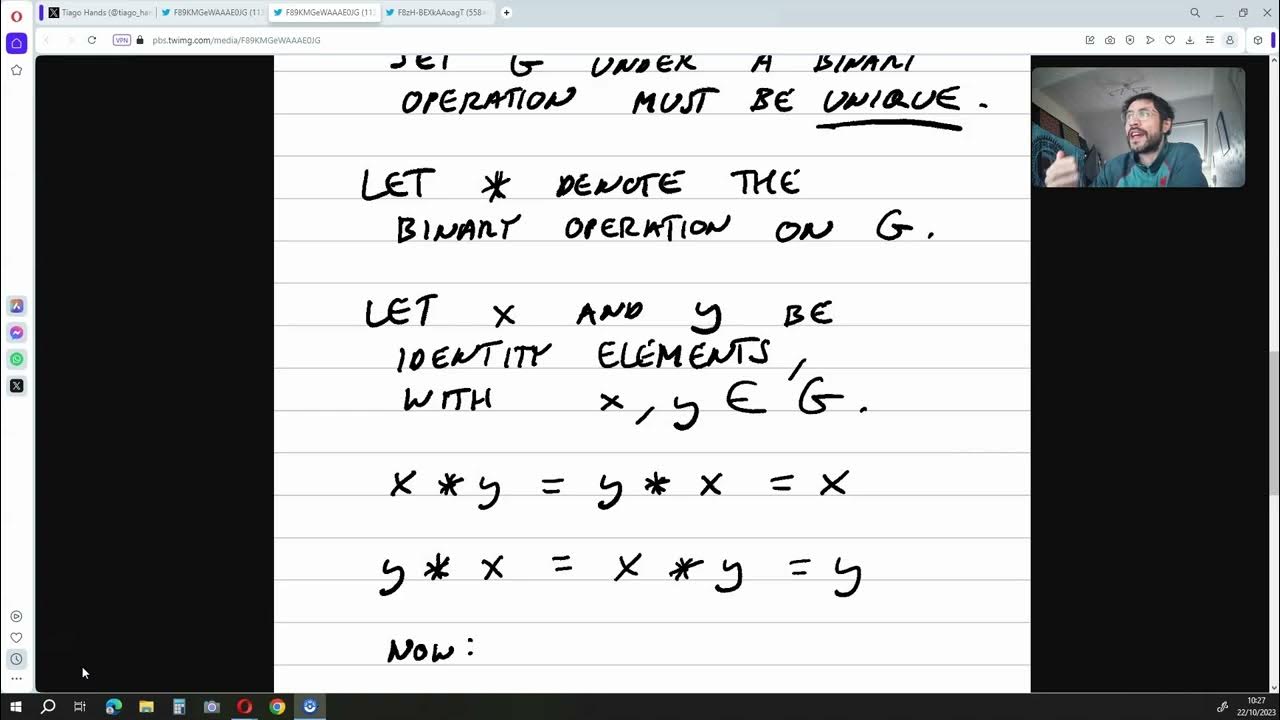 Tiago Hands (@tiago_han
F89KMGeWAAAE0JG (113
F89KMGeWAAAE0JG (113
F8zH-BEXkAAoagT (558×
VPN
pbs.twimg.com/media/F89KMGeWAAAE0JG
SET G UNDER A BINARY
OPERATION MUST BE UNIQUE.
LET * DENOTE THE
BINARY OPERATION ON G.
LET x AND y BE
IDENTITY ELEMENTS,
WITH x, y ∈ G.
x * y = y * x = x
y * x = x * y = y
NOW:
10:27
22/10/2023